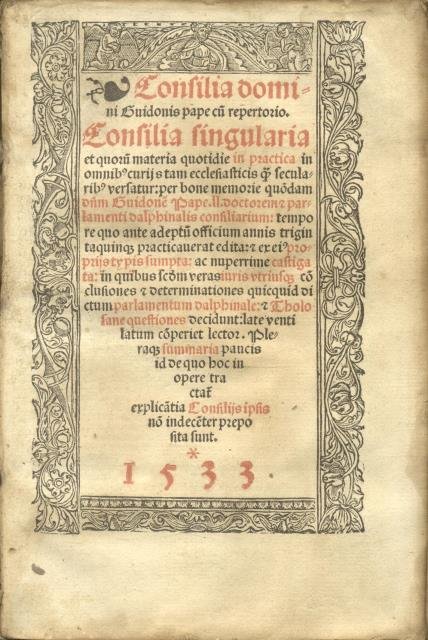 Consilia domi-
ni Guidonis pape cũ repertorio.
Consilia singularia
et quorũ materia quotidie in practica in
omnibꝰ curijs tam ecclesiasticis ꝙ̃ secula-
ribꝰ versatur: per bone memorie quõdam
dñm Guidonẽ Pape. ll. doctorem: ⁊ par-
lamenti dalphinalis consiliarium: tempo
re quo ante adeptũ officium annis trigin
taquinqꝫ practicauerat edita: ⁊ ex eiꝰ pro-
prijs typis sumpta: ac nuperrime castiga
ta: in quibus scđm veras iuris vtriusqꝫ cõ
clusiones ⁊ determinationes quicquid di
ctum parlamentum dalphinale: ⁊ Tholo
sane questiones decidunt: late venti
latum cõperiet lector. Ple-
raqꝫ summaria paucis
id de quo hoc in
opere tra
ctat᷑
explicãtia Consilijs ipsis
nõ indecẽter prepo
sita sunt.
*
1533.